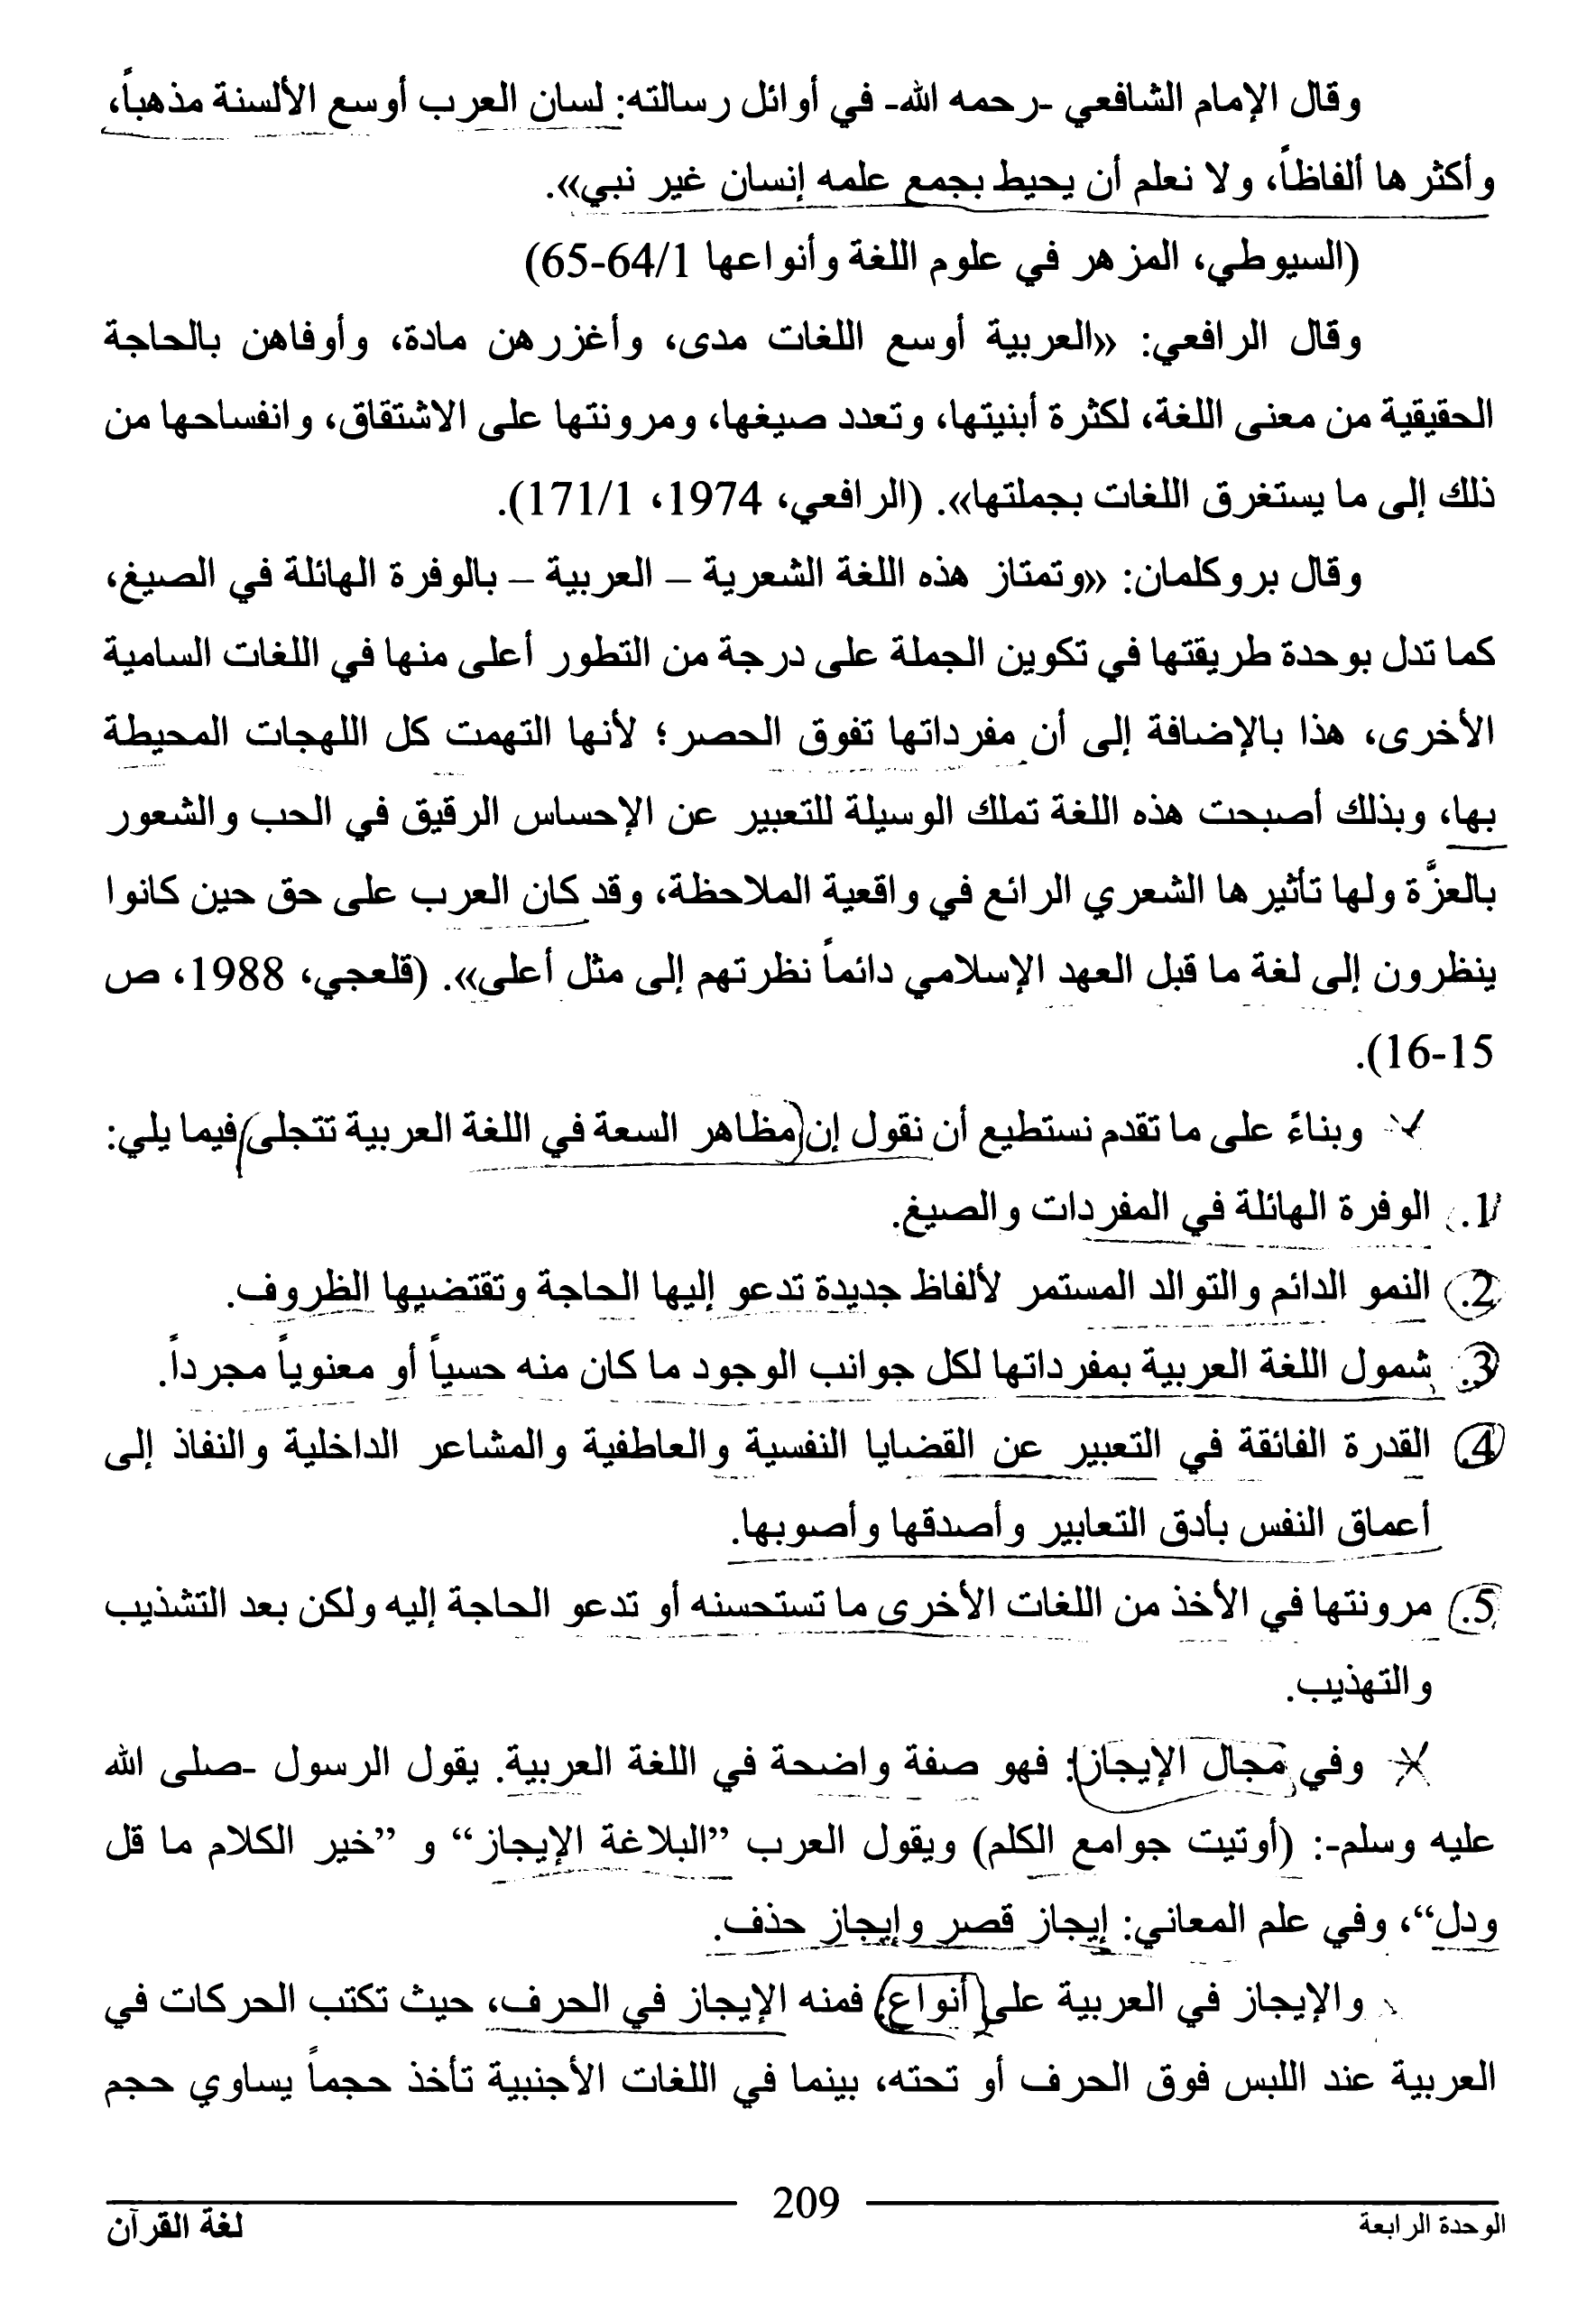 وقال الإمام الشافعي -رحمه الله- في أوائل رسالته: لسان العرب أوسع الألسنة مذهباً،
وأكثرها ألفاظاً، ولا نعلم أن يحيط بجمع علمه إنسان غير نبي».
(السيوطي، المزهر في علوم اللغة وأنواعها 64/1-65)
وقال الرافعي: «العربية أوسع اللغات مدى، وأغزرهن مادة، وأوفاهن بالحاجة
الحقيقية من معنى اللغة، لكثرة أبنيتها، وتعدد صيغها، ومرونتها على الاشتقاق، وانفساحها من
ذلك إلى ما يستغرق اللغات بجملتها». (الرافعي، 1974، 171/1).
وقال بروكلمان: «وتمتاز هذه اللغة الشعرية – العربية – بالوفرة الهائلة في الصيغ،
كما تدل بوحدة طريقتها في تكوين الجملة على درجة من التطور أعلى منها في اللغات السامية
الأخرى، هذا بالإضافة إلى أن مفرداتها تفوق الحصر؛ لأنها التهمت كل اللهجات المحيطة
بها، وبذلك أصبحت هذه اللغة تملك الوسيلة للتعبير عن الإحساس الرقيق في الحب والشعور
بالعزَّة ولها تأثيرها الشعري الرائع في واقعية الملاحظة، وقد كان العرب على حق حين كانوا
ينظرون إلى لغة ما قبل العهد الإسلامي دائماً نظرتهم إلى مثل أعلى». (قلعجي، 1988، ص
15-16).
وبناءً على ما تقدم نستطيع أن نقول إن مظاهر السعة في اللغة العربية تتجلى فيما يلي:
1. الوفرة الهائلة في المفردات والصيغ.
2. النمو الدائم والتوالد المستمر لألفاظ جديدة تدعو إليها الحاجة وتقتضيها الظروف.
3. شمول اللغة العربية بمفرداتها لكل جوانب الوجود ما كان منه حسياً أو معنوياً مجرداً.
4. القدرة الفائقة في التعبير عن القضايا النفسية والعاطفية والمشاعر الداخلية والنفاذ إلى
أعماق النفس بأدق التعابير وأصدقها وأصوبها.
5. مرونتها في الأخذ من اللغات الأخرى ما تستحسنه أو تدعو الحاجة إليه ولكن بعد التشذيب
والتهذيب.
وفي مجال الإيجاز: فهو صفة واضحة في اللغة العربية. يقول الرسول -صلى الله
عليه وسلم-: (أوتيت جوامع الكلم) ويقول العرب ”البلاغة الإيجاز“ و ”خير الكلام ما قل
ودل“، وفي علم المعاني: إيجاز قصر وإيجاز حذف.
والإيجاز في العربية على أنواع، فمنه الإيجاز في الحرف، حيث تكتب الحركات في
العربية عند اللبس فوق الحرف أو تحته، بينما في اللغات الأجنبية تأخذ حجماً يساوي حجم
الوحدة الرابعة 209 لغة القرآن